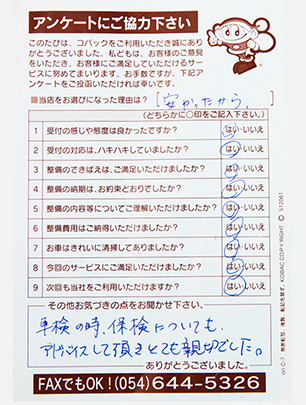 アンケートにご協力下さい
このたびは、コバックをご利用いただき誠にあり
がとうございました。私どもは、お客様のご意見
をいただき、お客様にご満足していただけるサー
ビスに努めてまいります。お手数ですが、下記アン
ケートをご投函いただければ幸いです。
■当店をお選びになった理由は? [安かったから。]
(どちらかに○印をご記入下さい。)
1 受付の感じや態度は良かったですか? はい・いいえ
2 受付の対応は、ハキハキしていましたか? はい・いいえ
3 整備のできばえは、ご満足いただけましたか? はい・いいえ
4 整備の納期は、お約束どおりでしたか? はい・いいえ
5 整備の内容等についてご理解いただけましたか? はい・いいえ
6 整備費用はご納得いただけましたか? はい・いいえ
7 お車はきれいに清掃してありましたか? はい・いいえ
8 今回のサービスにご満足いただけましたか? はい・いいえ
9 次回も当社をご利用いただけますか? はい・いいえ
その他お気づきの点をお聞かせ下さい。
車検の時、保検についても、
アドバイスして頂きとても親切でした。
ありがとうございました。
FAXでもOK! (054)644-5326
ori C-7 無断転写、複製、転記を禁ず。 KOBAC COPY RIGHT © 512061